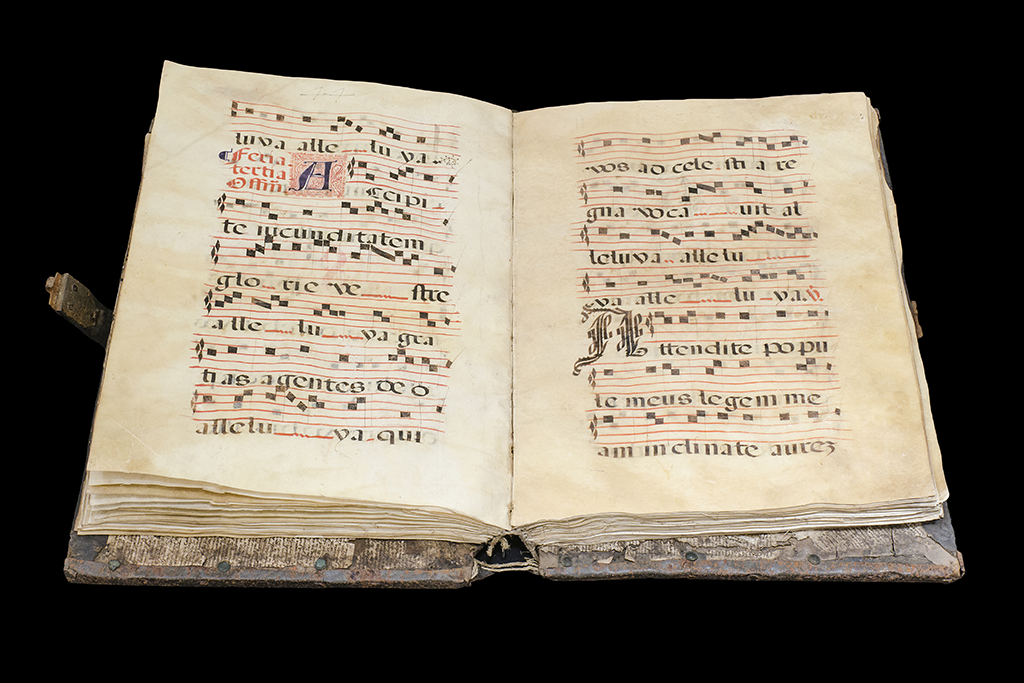 luya alle lu ya.
Feria
tertia
Offm̄
A ccipi
te iucunditatem
glo rie ve stre
alle lu ya gra
tias agentes deo
allelu ya qui
vos ad celestia re
gna voca uit al
leluya allelu
ya alle lu ya. V.
Attendite popu
le meus legem me
am inclinate aurez